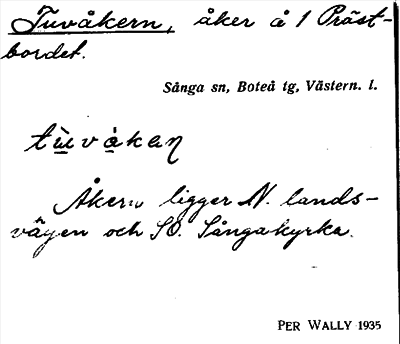 Tuvåkern, åker å 1 Präst-
bordet.
Sånga sn, Boteå tg, Västern. l.
tùvåkaɳ
Åkern ligger N. lands-
vägen och SO. Sångakyrka.
PER WALLY 1935